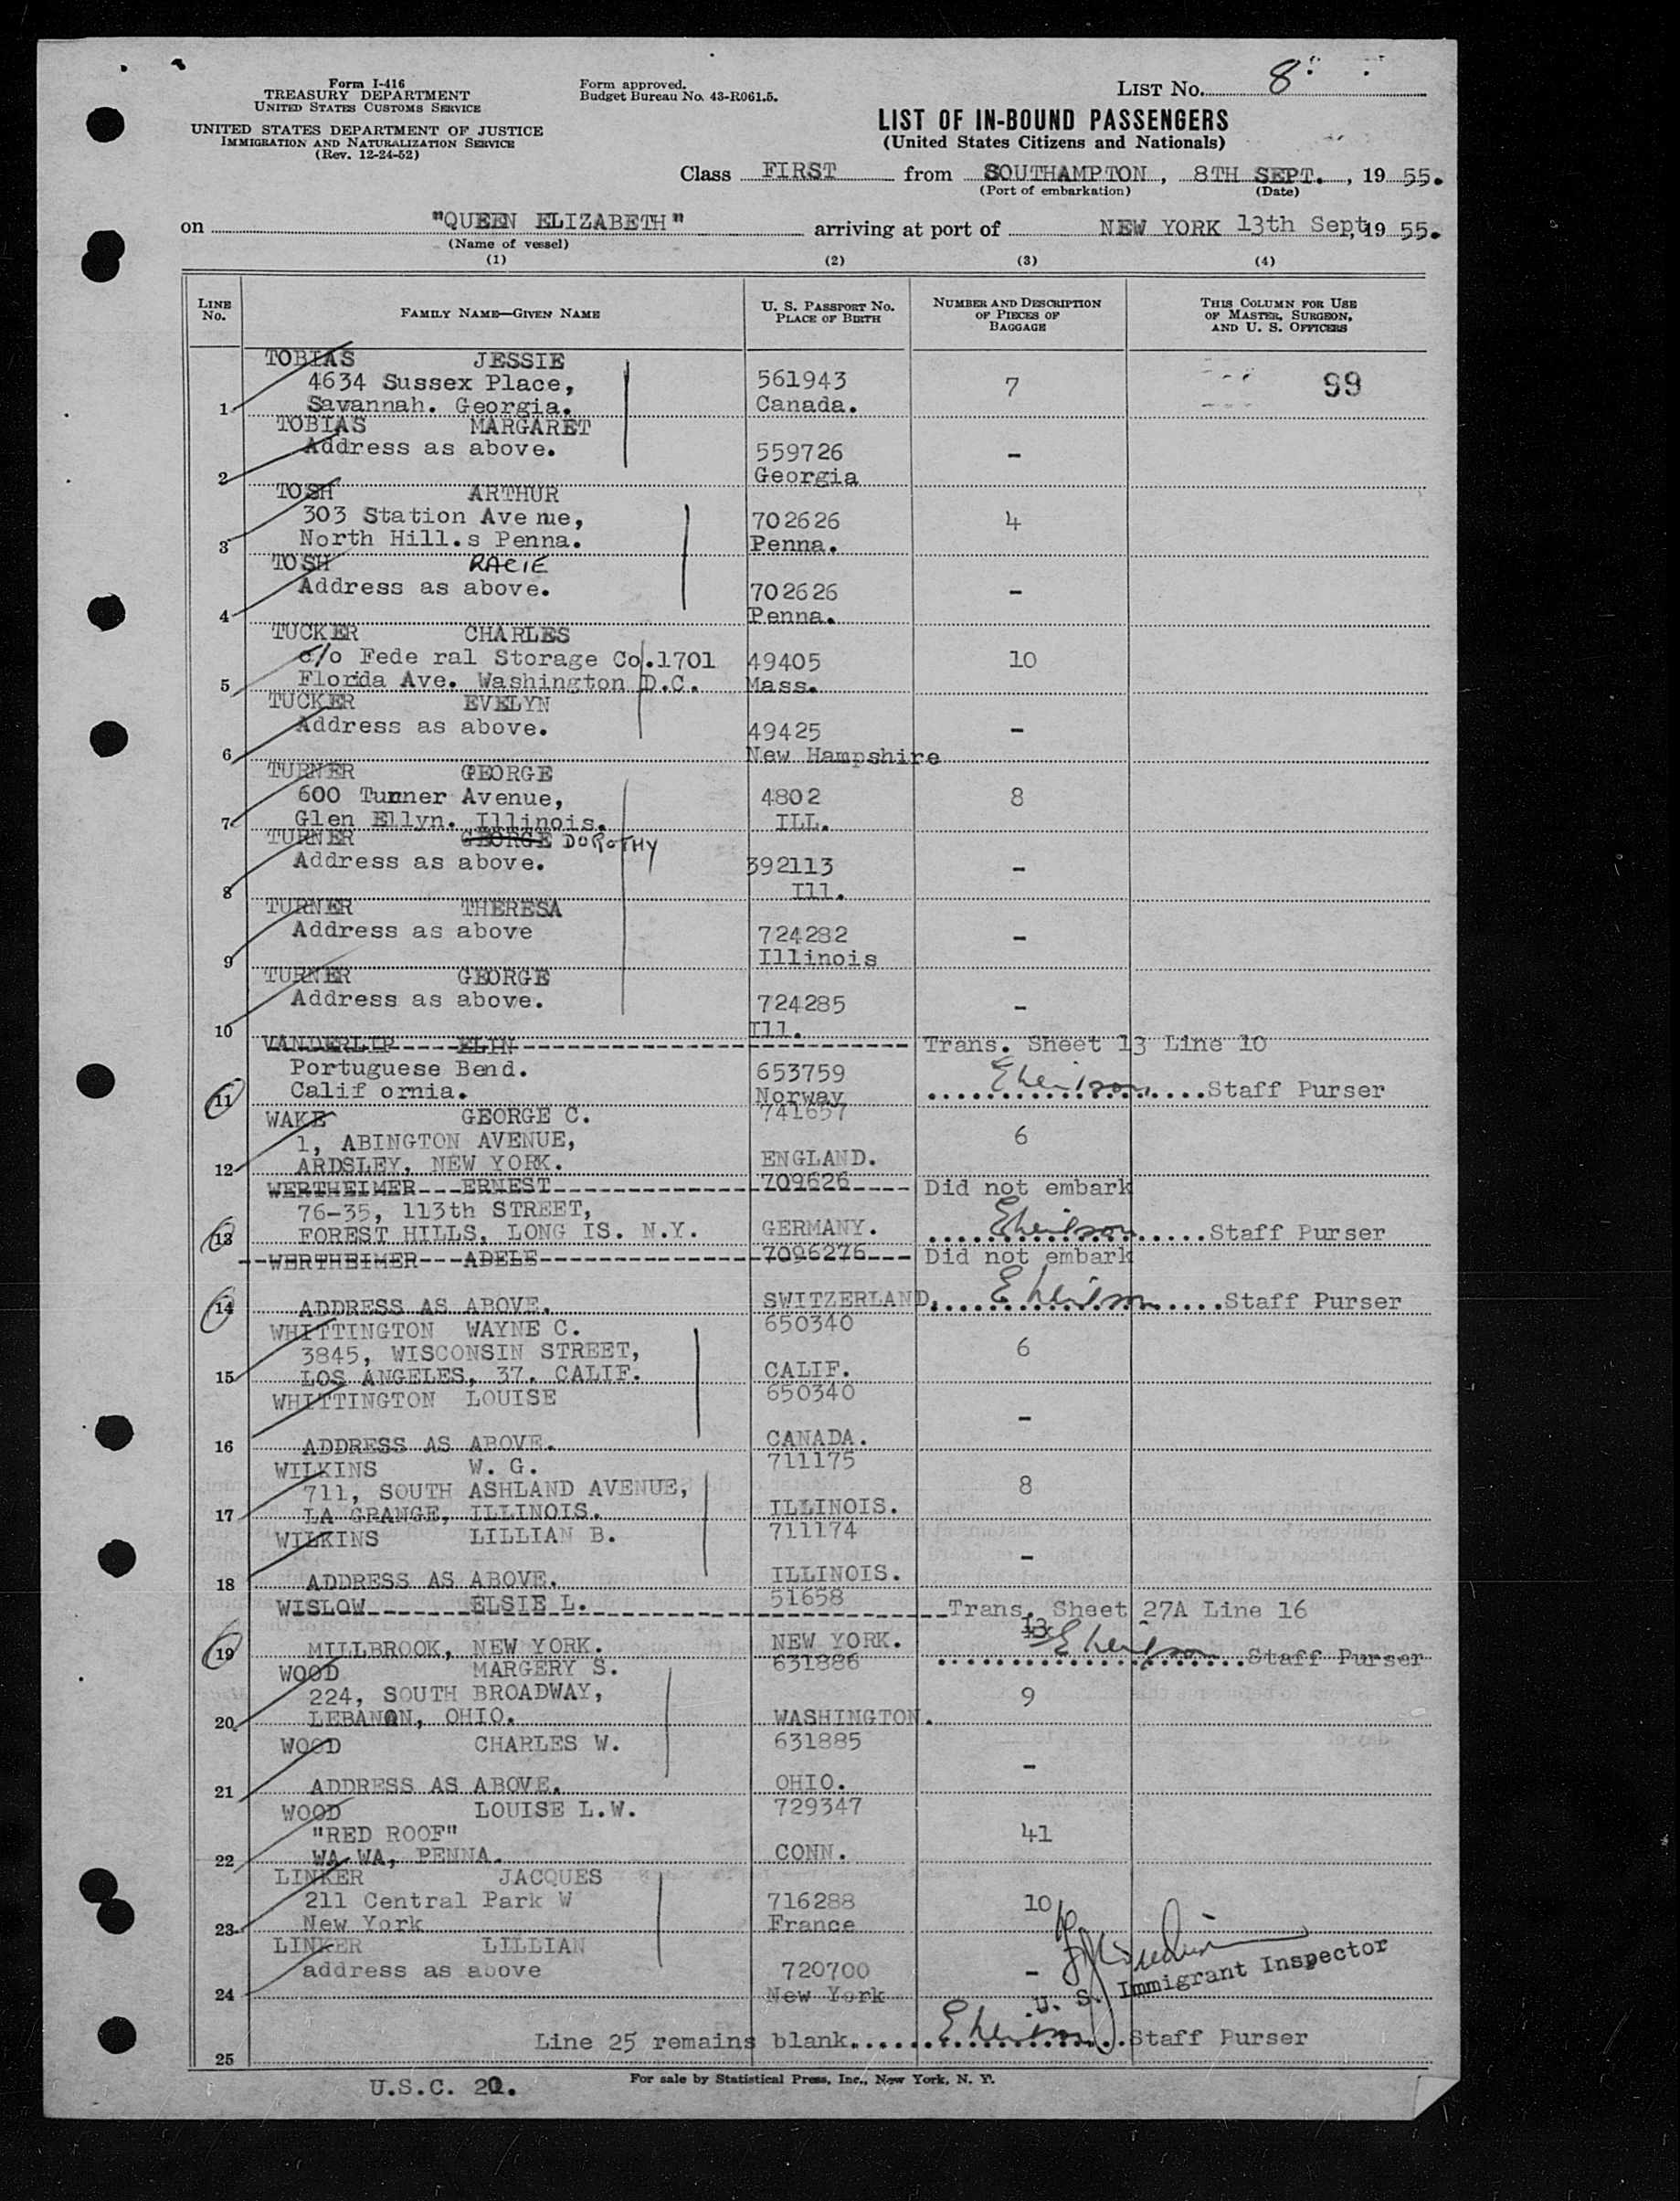 Form I-416
TREASURY DEPARTMENT
UNITED STATES CUSTOMS SERVICE
UNITED STATES DEPARTMENT OF JUSTICE
IMMIGRATION AND NATURALIZATION SERVICE
(Rev. 12-24-52)
Form approved.
Budget Bureau No. 43-R061.5.
LIST NO. 8
LIST OF IN-BOUND PASSENGERS
(United States Citizens and Nationals)
Class FIRST from SOUTHAMPTON, 8TH SEPT., 19 55.
(Port of embarkation) (Date)
on "QUEEN ELIZABETH" arriving at port of NEW YORK 13th Sept, 19 55.
(Name of vessel)
(1) (2) (3) (4)
LINE NO. FAMILY NAME—GIVEN NAME U. S. PASSPORT NO. PLACE OF BIRTH NUMBER AND DESCRIPTION OF PIECES OF BAGGAGE THIS COLUMN FOR USE OF MASTER, SURGEON, AND U. S. OFFICERS
TOBIAS JESSIE
4634 Sussex Place, 561943 7 99
1 Savannah. Georgia. Canada.
TOBIAS MARGARET
Address as above. 559726 -
2 Georgia
TOSH ARTHUR
303 Station Ave nue, 702626 4
3 North Hill.s Penna. Penna.
TOSH RACIE
Address as above. 702626 -
4 Penna.
TUCKER CHARLES
c/o Fede ral Storage Co.1701 49405 10
5 Florida Ave. Washington D.C. Mass.
TUCKER EVELYN
Address as above. 49425 -
6 New Hampshire
TURNER GEORGE
600 Turner Avenue, 4802 8
7 Glen Ellyn. Illinois. ILL.
TURNER GEORGE DOROTHY
Address as above. 392113 -
8 Ill.
TURNER THERESA
Address as above 724282 -
9 Illinois
TURNER GEORGE
Address as above. 724285 -
10 Ill.
VANDERLIP ELIN Trans. Sheet 13 Line 10
Portuguese Bend. 653759
11 Calif ornia. Norway Staff Purser
WAKE GEORGE C. 741657
1, ABINGTON AVENUE, 6
12 ARDSLEY, NEW YORK. ENGLAND.
WERTHEIMER ERNEST 709626 Did not embark
76-35, 113th STREET,
13 FOREST HILLS, LONG IS. N.Y. GERMANY. Staff Purser
WERTHEIMER ADELE 7096276 Did not embark
14 ADDRESS AS ABOVE. SWITZERLAND. Staff Purser
WHITTINGTON WAYNE C. 650340
3845, WISCONSIN STREET, 6
15 LOS ANGELES, 37. CALIF. CALIF.
WHITTINGTON LOUISE 650340
-
16 ADDRESS AS ABOVE. CANADA.
WILKINS W. G. 711175
711, SOUTH ASHLAND AVENUE, 8
17 LA GRANGE, ILLINOIS. ILLINOIS.
WILKINS LILLIAN B. 711174
-
18 ADDRESS AS ABOVE. ILLINOIS.
WISLOW ELSIE L. 51658 Trans. Sheet 27A Line 16
19 MILLBROOK, NEW YORK. NEW YORK. Staff Purser
WOOD MARGERY S. 631886
224, SOUTH BROADWAY, 9
20 LEBANON, OHIO. WASHINGTON.
WOOD CHARLES W. 631885
-
21 ADDRESS AS ABOVE. OHIO.
WOOD LOUISE L.W. 729347
"RED ROOF" 41
22 WA WA, PENNA. CONN.
LINKER JACQUES
211 Central Park W 716288 10
23 New York France
LINKER LILLIAN
address as above 720700 -
24 New York
U. S. Immigrant Inspector
Line 25 remains blank. Staff Purser
25
U.S.C. 20.
For sale by Statistical Press, Inc., New York, N. Y.